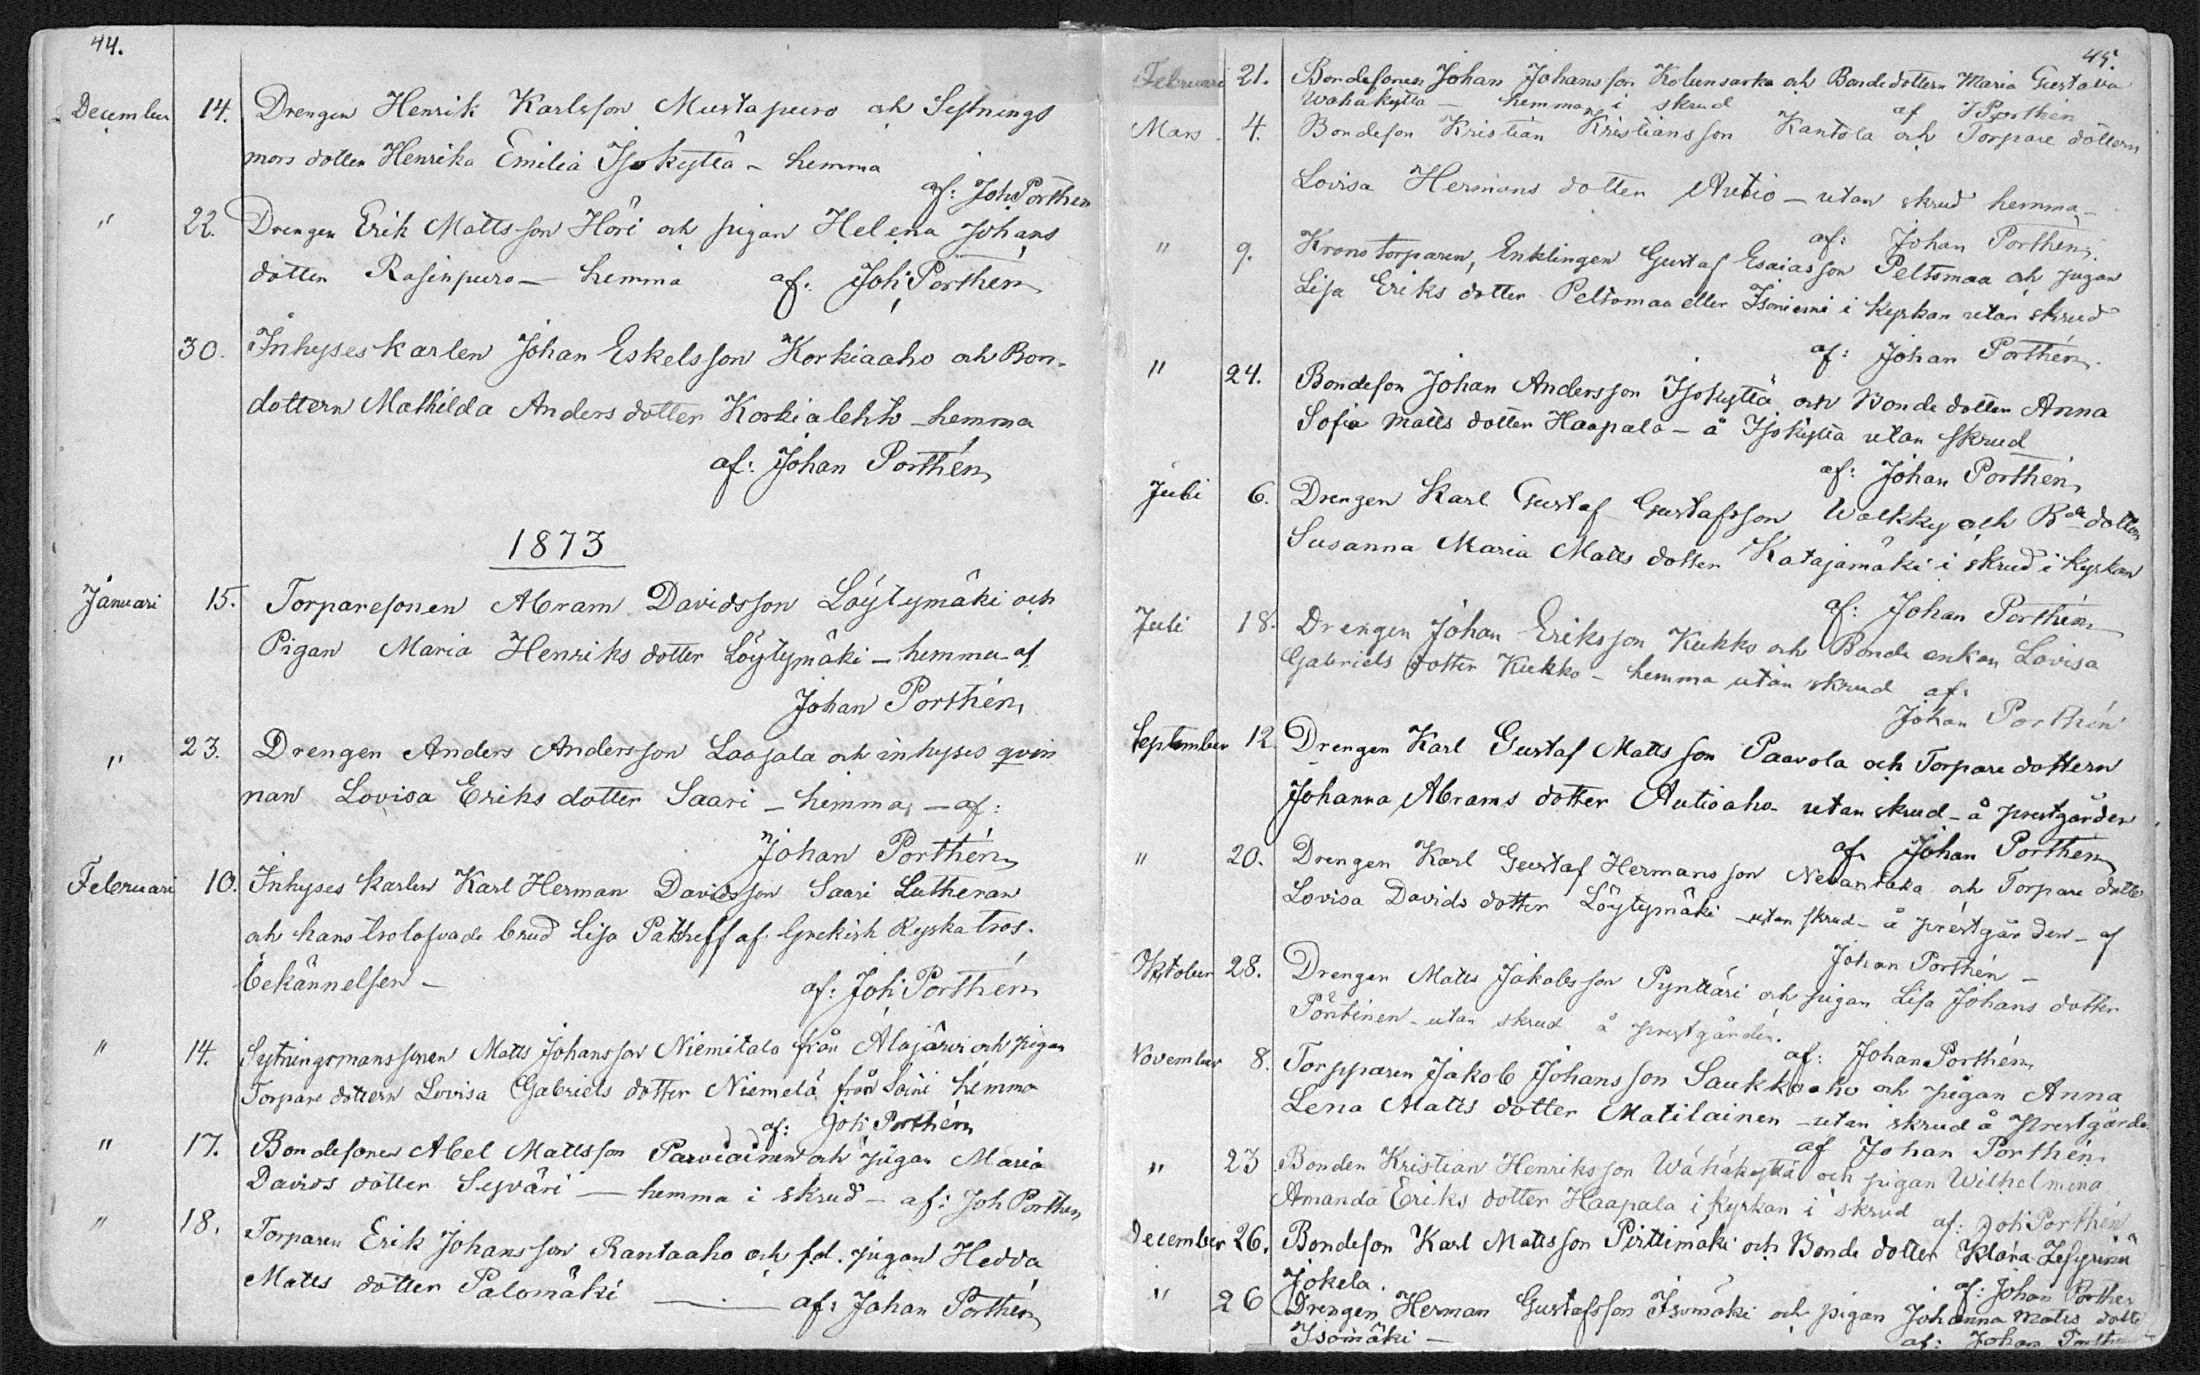 44.
December 14. Drengen Henrik Karlsson Mustapuro och Sytnings
mors dotter Henrika Emilia Isokyttä - hemma
af: Joh Porthén
" 22. Drengen Erik Matts son Höri och pigan Helena Johans
dotter Rasinpuro - hemma af. Joh Porthén
30. Inhyseskarlen Johan Eskelsson Korkiaaho och Bon-
dottern Mathilda Anders dotter Korkialehto - hemma
af: Johan Porthén
1873
Januari 15. Torparesonen Abram Davidsson Löytymäki och
Pigan Maria Henriks dotter Löytymäki - hemma af
Johan Porthén
" 23. Drengen Anders Andersson Laasala och inhyses qvin
nan Lovisa Eriks dotter Saari - hemma, - af:
Johan Porthén
Februari 10. Inhyses karlen Karl Herman Davidsson Saari Lutheran
och hans trolofvade brud Lisa af Grekisk Ryska tros-
bekännelsen -
af: Joh Porthén
" 14. Sytningsmanssonen Matts Johansson Niemitalo från Alajärvi och pigan
Torpare dottern Lovisa Gabriels dotter Niemelä från Soini hemma
af: Joh Porthén
" 17. Bondesonen Abel Mattsson Parviainen och pigan Maria
Davids dotter Syväri - hemma i skrud - af: Joh Porthén
" 18. Torparen Erik Johansson Rantaaho och f.d. pigan Hedda
Matts dotter Palomäki - af: Johan Porthén
45.
Februari 21. Bondesonen Johan Johansson Kolunsarka och Bondedottern Maria Gustava
Wähäkyttä - hemma i skrud af J Porthén
Mars 4. Bondeson Kristian Kristiansson Kantola och Torpare dottern
Lovisa Hermans dotter Autio - utan skrud hemma -
af: Johan Porthén
" 9. Kronotorparen, Enklingen Gustaf Esaiasson Peltomaa och pigan
Lisa Eriks dotter Peltomaa eller Isoniemi i kyrkan utan skrud
af: Johan Porthén.
" 24. Bondeson Johan Andersson Isokyttä och Bonde dotter Anna
Sofia Matts dotter Haapala - å Isokyttä utan skrud
af: Johan Porthén
Juli 6. Drengen Karl Gustaf Gustafsson Wolkky och Bde dottern
Susanna Maria Matts dotter Katajamäki i skrud i kyrkan
af: Johan Porthén
Juli 18. Drengen Johan Eriksson Kukko och Bonde enkan Lovisa
Gabriels dotter Kukko - hemma utan skrud af:
Johan Porthén
September 12. Drengen Karl Gustaf Matts son Paavola och Torpare dottern
Johanna Abrams dotter Autioaho utan skrud - å prestgården
af Johan Porthén
" 20. Drengen Karl Gustaf Hermansson Nevanlaka och Torpare dotter
Lovisa Davids dotter Löytymäki - utan skrud - å prestgården - af
Johan Porthén -
Oktober 28. Drengen Matts Jakobsson Pynttäri och pigan Lisa Johans dotter
Pöntinen - utan skrud å prestgården.
af: Johan Porthén
November 8. Torpparen Jakob Johansson Saukkoaho och pigan Anna
Lena Matts dotter Matilainen - utan skrud å prestgården
af Johan Porthén
" 23 Bonden Kristian Henriksson Wähäkyttä och pigan Wilhelmina
Amanda Eriks dotter Haapala i kyrkan i skrud af: Joh Porthén
December 26. Bondeson Karl Mattsson Pirttimäki och Bonde dotter Klara Zefyrina
Jokela. af: Johan Porthén
" 26 Drengen Herman Gustafsson Isomäki och pigan Johanna Matts dotter
Isomäki - af: Johan Porthén